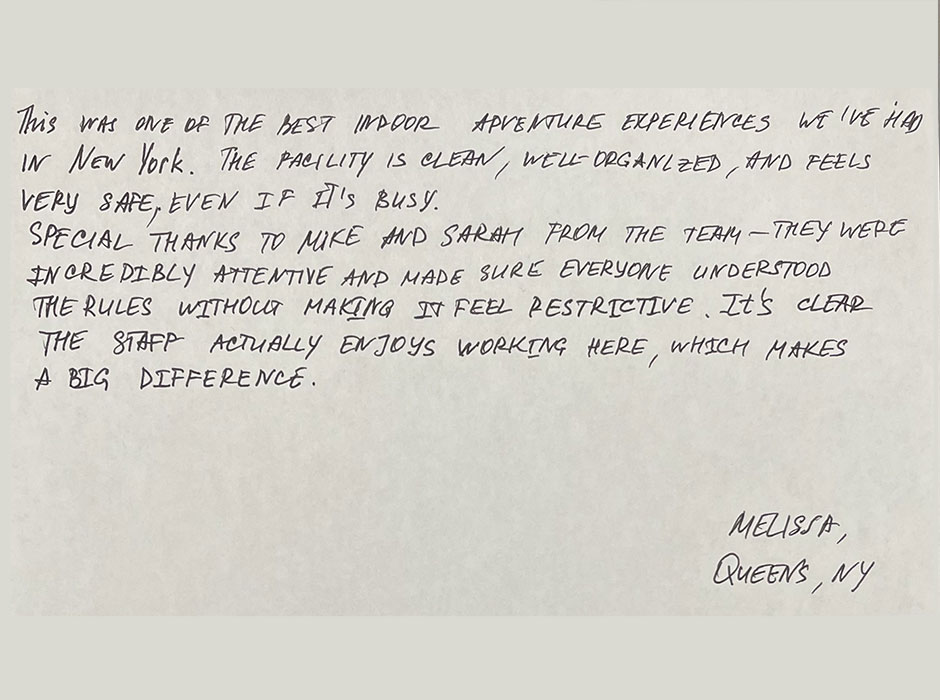 This WAS ONE OF THE BEST INDOOR ADVENTURE EXPERIENCES WE'VE HAD
IN New York. THE FACILITY IS CLEAN, WELL-ORGANIZED, AND FEELS
VERY SAFE, EVEN IF IT'S BUSY.
SPECIAL THANKS TO MIKE AND SARAH FROM THE TEAM – THEY WERE
INCREDIBLY ATTENTIVE AND MADE SURE EVERYONE UNDERSTOOD
THE RULES WITHOUT MAKING IT FEEL RESTRICTIVE. It's CLEAR
THE STAFF ACTUALLY ENJOYS WORKING HERE, WHICH MAKES
A BIG DIFFERENCE.
MELISSA,
QUEENS, NY